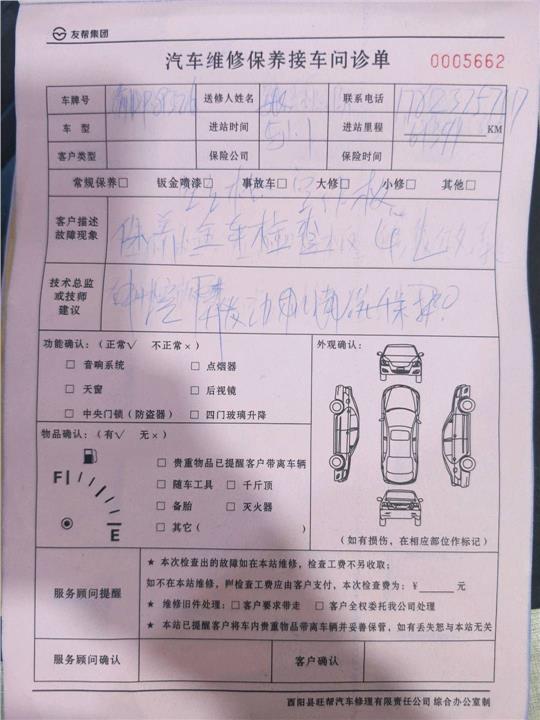 友帮集团
汽车维修保养接车问诊单 0005662
车牌号 送修人姓名 联系电话
车 型 进站时间 51.1 进站里程 KM
客户类型 保险公司 保险时间
常规保养□ 钣金喷漆□ 事故车□ 大修□ 小修□ 其他□
客户描述
故障现象
保养 全车检查
技术总监
或技师
建议
发动机
功能确认：（正常√ 不正常×） 外观确认：
□ 音响系统 □ 点烟器
□ 天窗 □ 后视镜
□ 中央门锁（防盗器） □ 四门玻璃升降
物品确认：（有√ 无×）
F
E
□ 贵重物品已提醒客户带离车辆
□ 随车工具 □ 千斤顶
□ 备胎 □ 灭火器
□ 其它（ ）
（如有损伤，在相应部位作标记）
服务顾问提醒
★ 本次检查出的故障如在本站维修，检查工费不另收取；
如不在本站维修，则检查工费应由客户支付，本次检查费为：¥ 元
★ 维修旧件处理：□ 客户要求带走 □ 客户全权委托我公司处理
★ 本站已提醒客户将车内贵重物品带离车辆并妥善保管，如有丢失恕与本站无关
服务顾问确认 客户确认
酉阳县旺帮汽车修理有限责任公司 综合办公室制